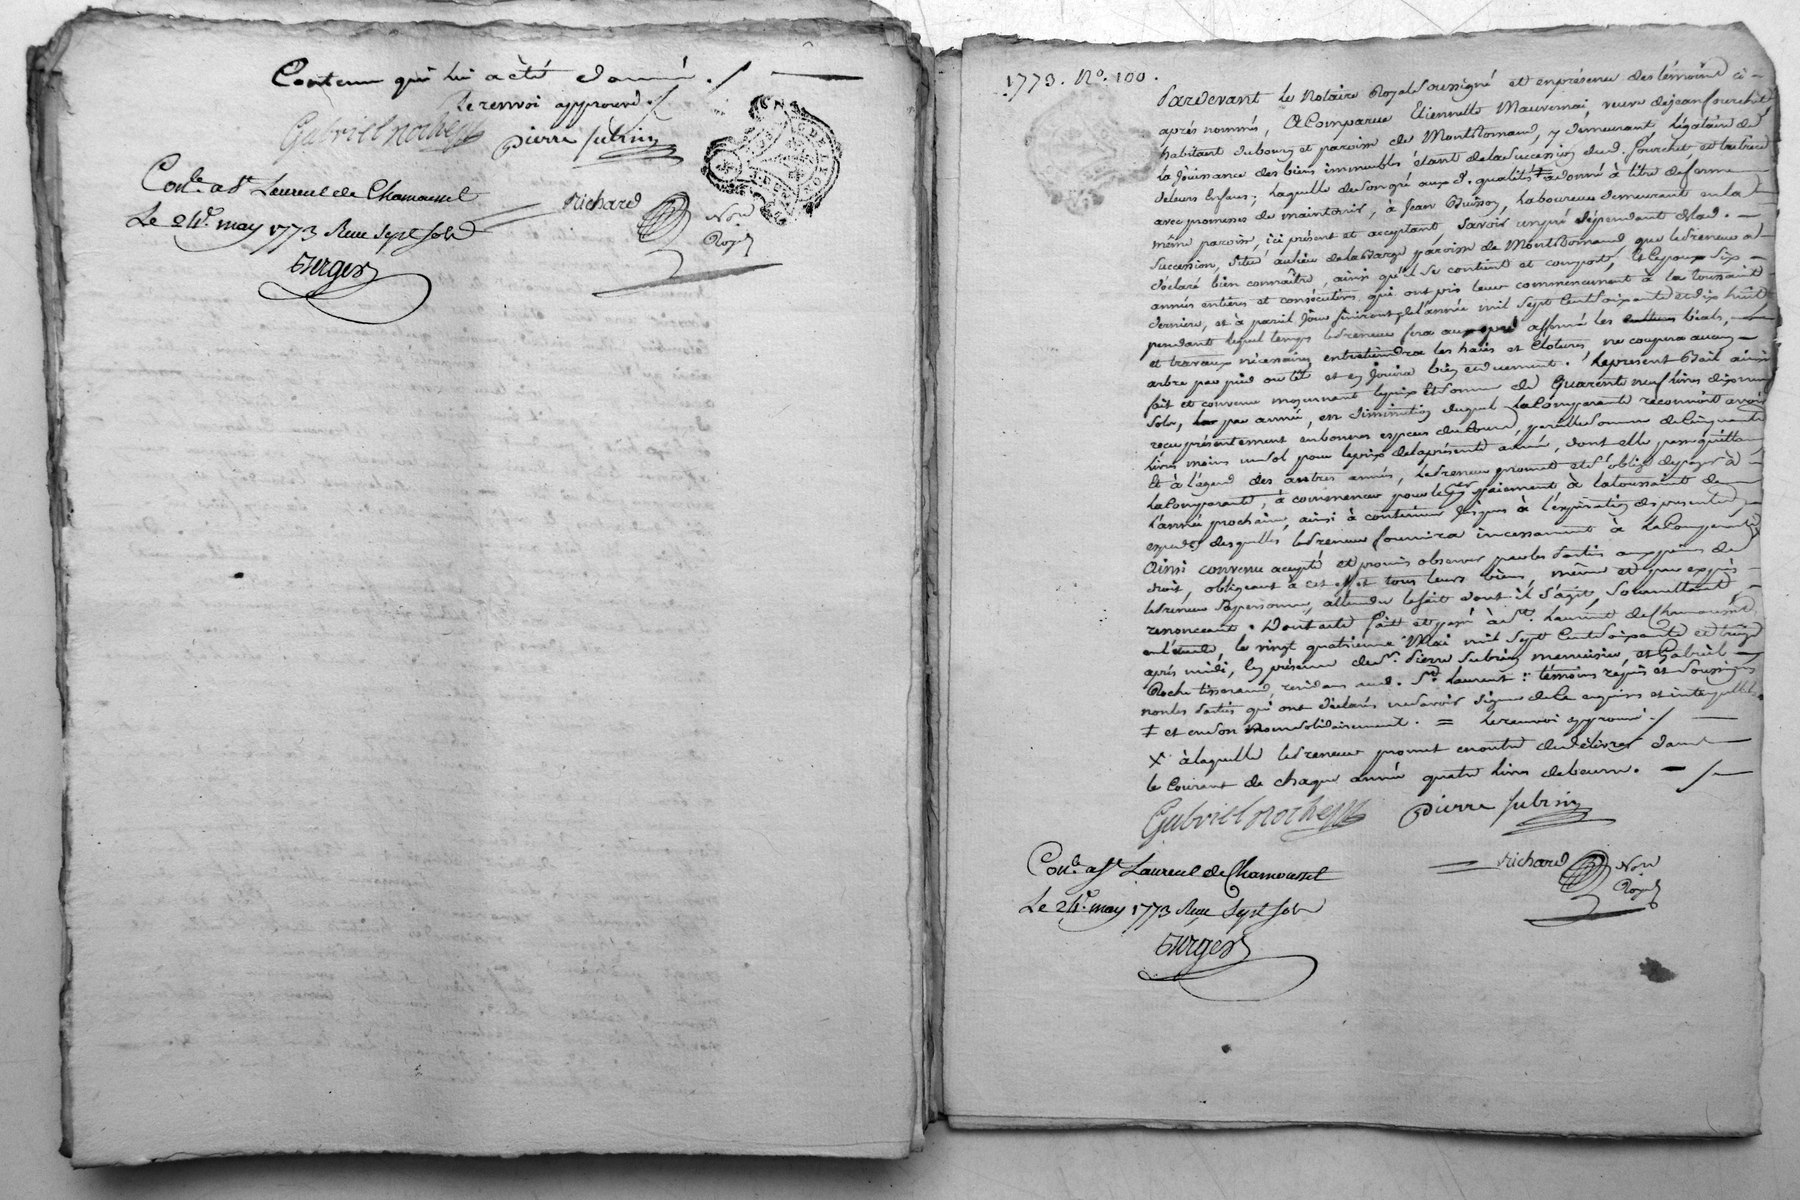 Contenu qui lui a été donné ./.
Le renvoi approuvé ./.
Gabriel Roche
pierre subrin
Con.le a St Laurent de Chamousset
Le 24e may 1773 Reçu Sept sols
richard Not.
Roy.l
1773. No. 100.
Pardevant le Notaire Royal Soussigné et en présence des témoins ci-
après nommés, A Comparue Etiennette Mauvernai, veuve de jean fourchet
habitant du bourg et paroisse de Montromand, y demeurant, Légataire de
la Jouissance des biens immeubles étant de la Succession dud. fourchet, et tutrice
de leurs Enfans; laquelle de son gré aux d. qualités ‡ a donné à titre de ferme
avec promesses de maintenir, à Jean Buisson, Laboureur demeurant en la
même paroisse, ici présent et acceptant, Savoir un pré dépendant de lad.
Succession, Situé au lieu de la Barge paroisse de Montromand, que le Preneur a
déclaré bien connaître, ainsi qu'il se contient et comporte, Et ce pour Six
années entières et consécutives, qui ont pris leur commencement à la toussaint
dernière, et à pareil Jour finiront de l'année mil Sept Cent Soixante et dix huit
pendant lequel temps le Preneur fera au pré affermé les béals,
et travaux nécessaires, entretiendra les haies et Clotures, ne coupera aucun
arbre par pied ou tête et en Jouira bien et duement. Le présent Bail ainsi
fait et convenu moyennant le prix et Somme de Quarente neuf livres dix neuf
Sols, par année, en diminution duquel La Comparante reconnoit avoir
reçu présentement en bonnes espèces de cours, pareille Somme de Cinquante
livres moins un Sol pour le prix de la présente année, dont elle passe quittance
Et à l'égard des autres années, le Preneur promet et S'oblige de payer à
La Comparante, à commencer pour le 1er paiement à la toussaint de
l'année prochaine, ainsi à continuer Jusques à l'expiration des présentes,
expédition desquelles le Preneur fournira incessamment à La Comparante
Ainsi convenu accepté et promis observer par les Parties aux peines de
droit, obligeant à cet effet tous leurs biens, même et par exprès
le Preneur Sa personne, attendu le fait dont il S'agit, Soumettant
renonceant. Dont acte fait et passé à St. Laurent de Chamousset
en l'étude, le vingt quatrieme Mai mil Sept Cent Soixante et treize
après midi, en présence de Sr. Pierre Subrin menuisier, et Gabriel
Roche tisserand, résidans aud. St. Laurent: témoins requis et Soussignés
non les Parties qui ont déclarés ne Savoir Signer de Ce enquises et interpellées
‡ et en Son nom Solidairement. = le renvoi approuvé ./.
X à laquelle le Preneur promet en outre de délivrer dans
le Courant de chaque année quatre livres de beurre. — ./.
Gabriel Roche
pierre subrin
Con.le a St Laurent de Chamousset
Le 24e may 1773 Reçu Sept sols
richard Not.
Roy.l